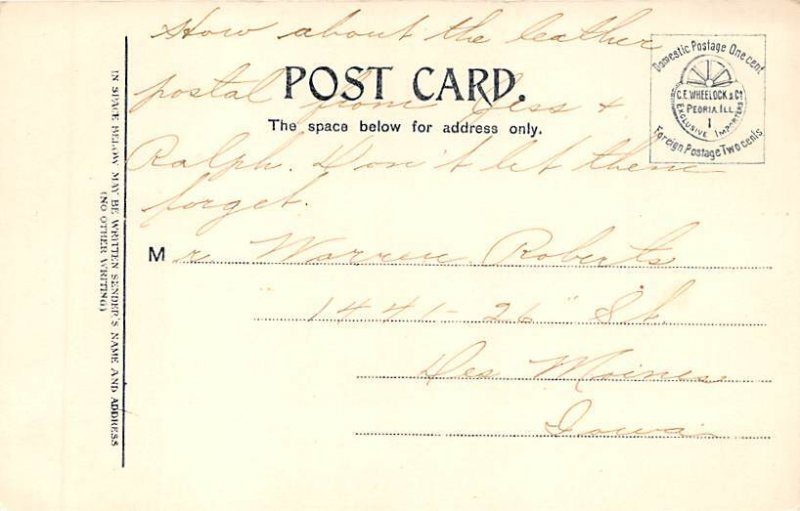 How about the leather
postal from Jess &
Ralph. Don't let them
forget.
POST CARD.
The space below for address only.
Domestic Postage One cent
C.E. WHEELOCK & CO
PEORIA, ILL.
1
EXCLUSIVE IMPORTERS
Foreign Postage Two cents
IN SPACE BELOW MAY BE WRITTEN SENDER'S NAME AND ADDRESS
(NO OTHER WRITING)
Mr. Warren Roberts
1441-26" St.
Des Moines
Iowa